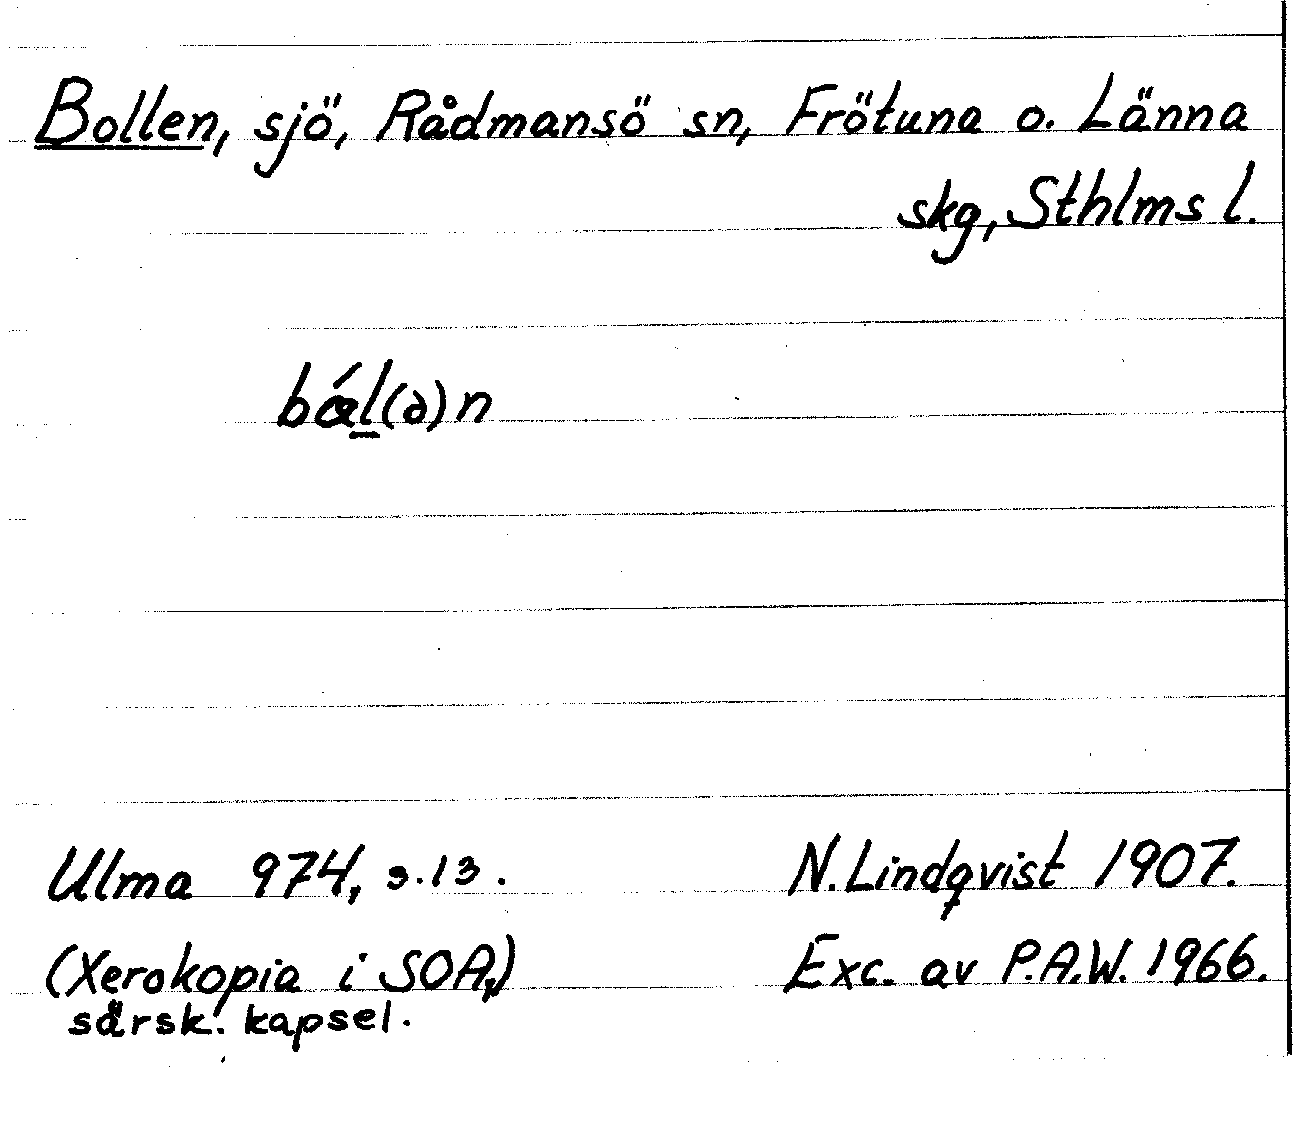 Bollen, sjö, Rådmansö sn, Frötuna o. Länna
skg, Sthlms l.
bǽl(ə)n
Ulma 974, s.13. N. Lindqvist 1907.
(Xerokopia i SOA,) Exc. av P.A.W. 1966.
särsk. kapsel.